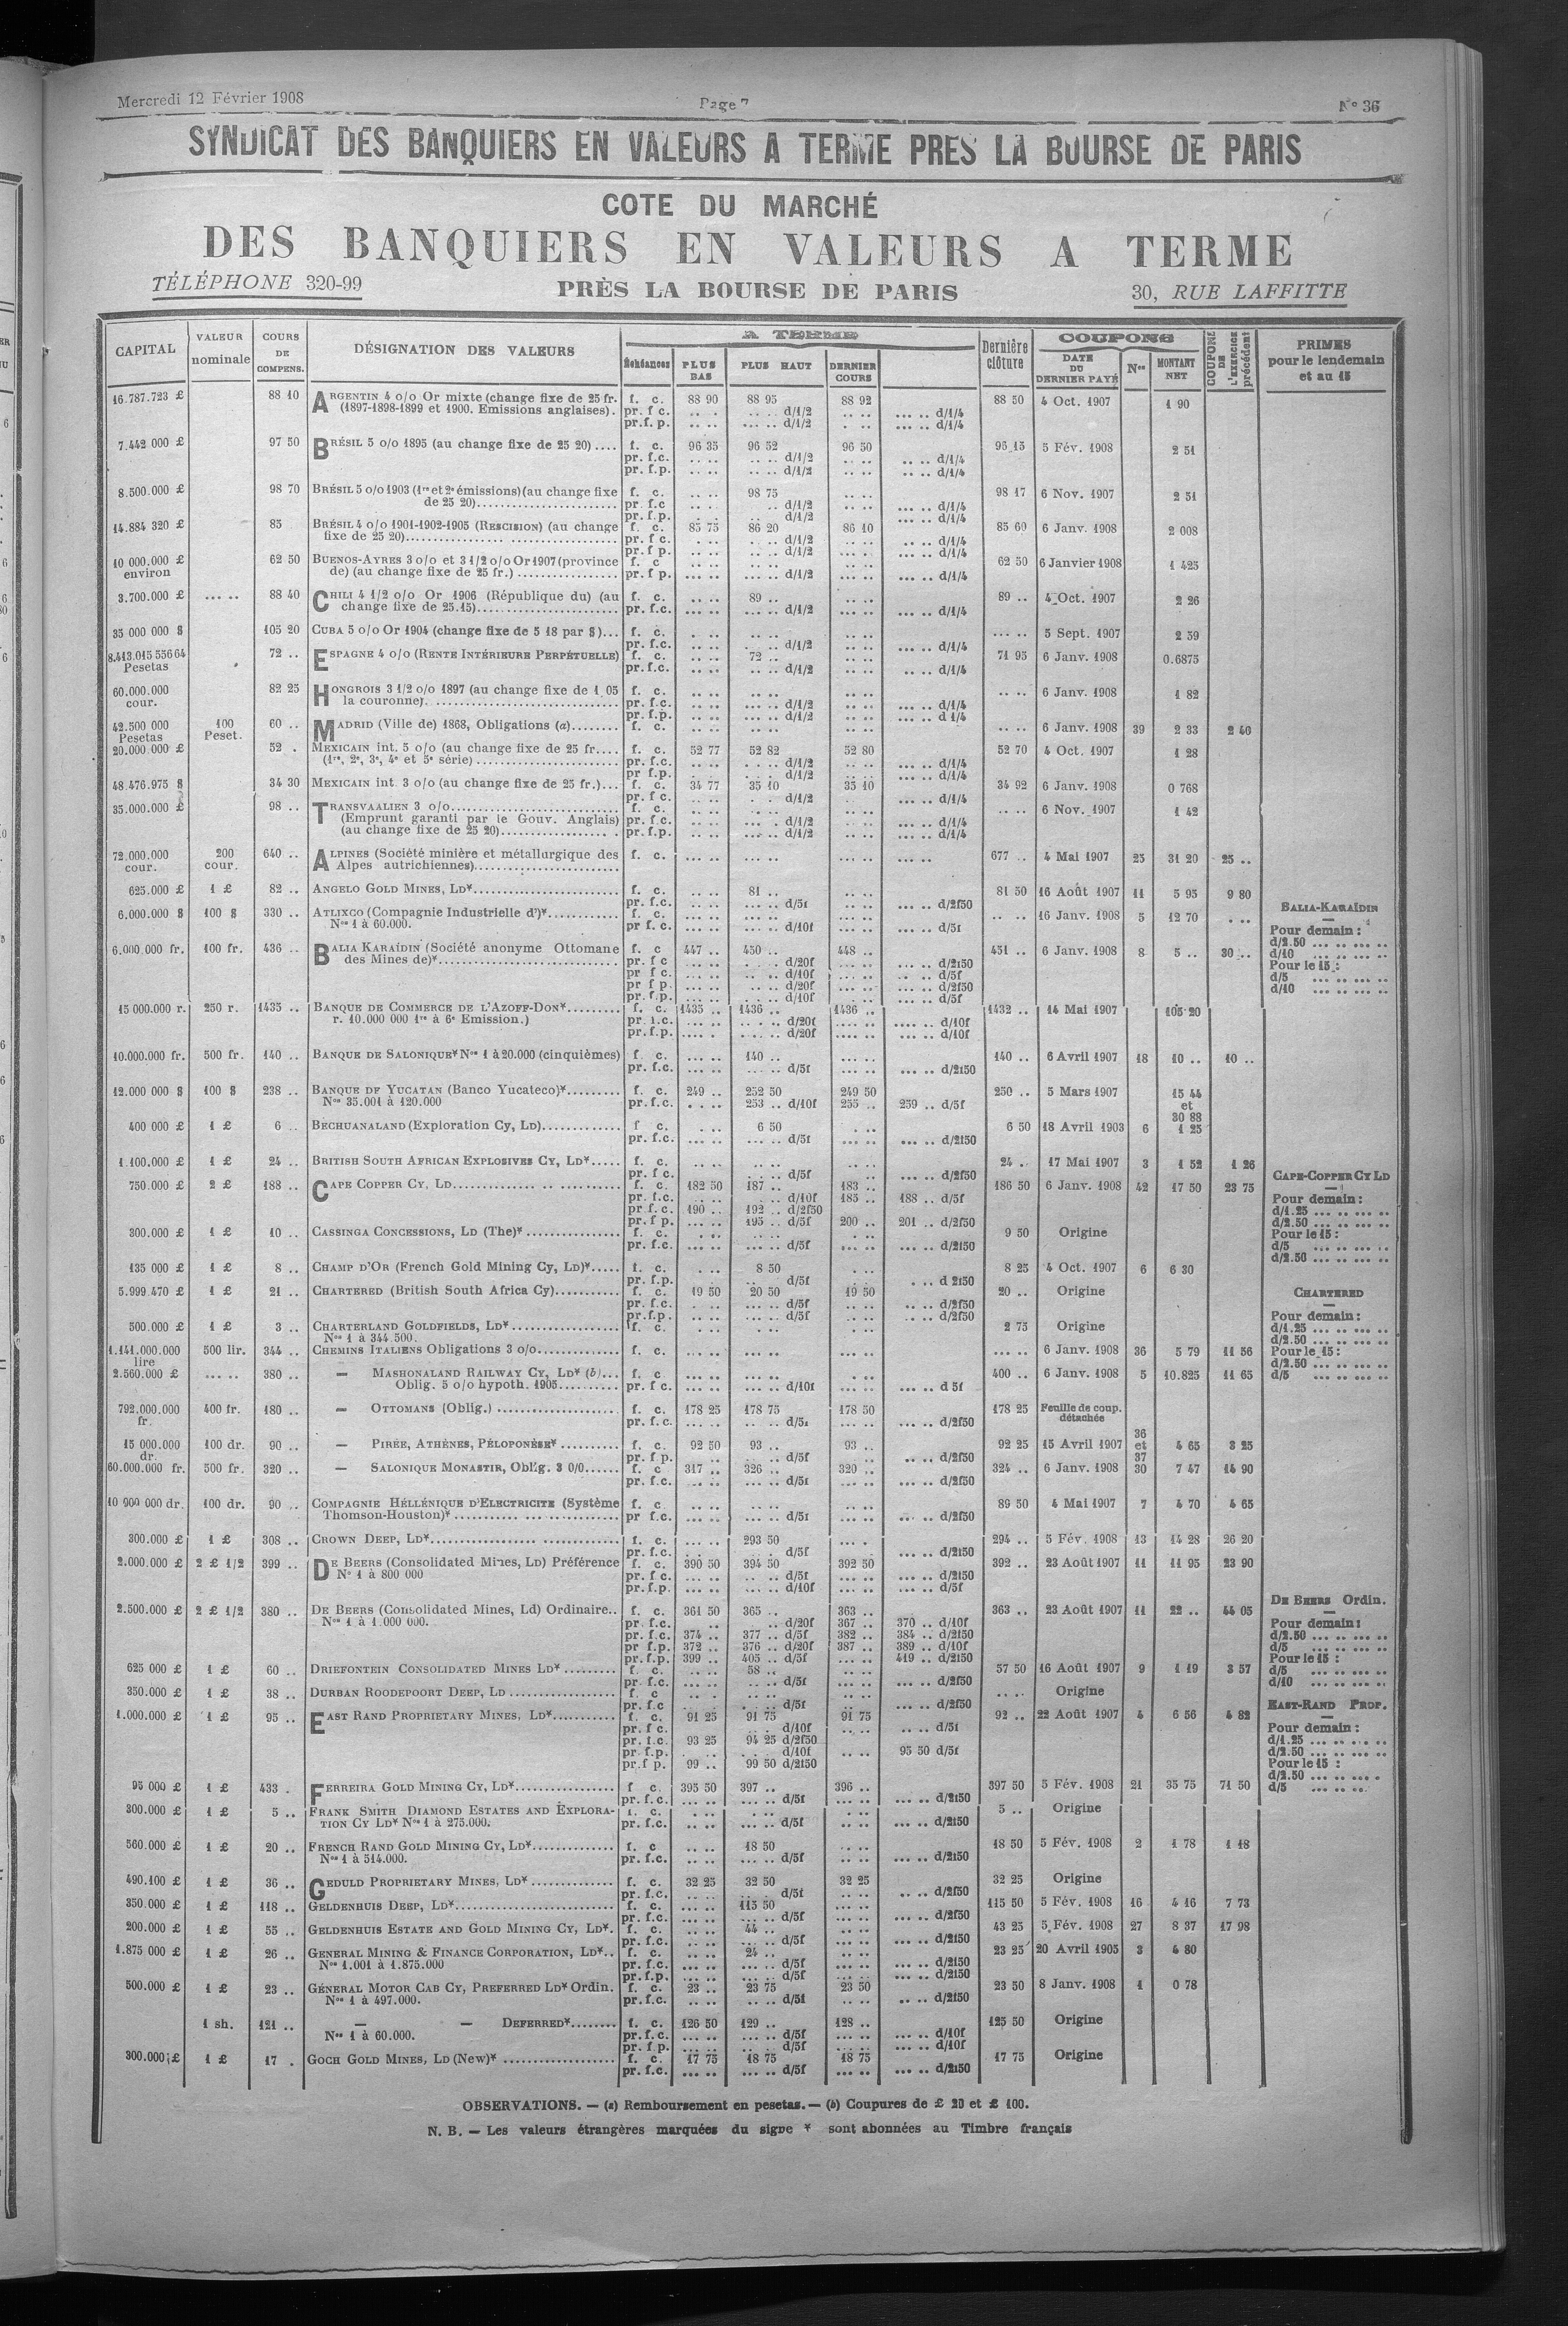 Mercredi 12 Février 1908
Page 7
N° 36
SYNDICAT DES BANQUIERS EN VALEURS A TERME PRES LA BOURSE DE PARIS
COTE DU MARCHÉ
DES BANQUIERS EN VALEURS A TERME
TÉLÉPHONE 320-99
PRÈS LA BOURSE DE PARIS
30, RUE LAFFITTE
CAPITAL
VALEUR nominale
COURS DE COMPENS.
DÉSIGNATION DES VALEURS
A TERME
Échéances
PLUS BAS
PLUS HAUT
DERNIER COURS
Dernière clôture
COUPONS
DATE DU DERNIER PAYÉ
Nos
MONTANT NET
COUPONS DE L'EXERCICE précédent
PRIMES pour le lendemain et au 15
16.787.723 £ 88 10 ARGENTIN 4 o/o Or mixte (change fixe de 25 fr. f. c. 88 90 88 95 88 92 88 50 4 Oct. 1907 1 90
(1897-1898-1899 et 1900. Emissions anglaises). pr. f c. .. . .. .. d/1/2 ... .. d/1/4
pr.f. p. .. .. ... .. d/1/2 . .. ... .. d/1/4
7.442 000 £ 97 50 BRÉSIL 5 o/o 1895 (au change fixe de 25 20) .... f. c. 96 35 96 52 96 50 95 15 5 Fév. 1908 2 51
pr. f.c. .. .. .. .. d/1/2 .. .. .. .. d/1/4
pr. f.p. .. .. ... .. d/1/2 .. .. .. .. d/1/4
8.500.000 £ 98 70 BRÉSIL 5 o/o 1903 (1re et 2e émissions) (au change fixe f. c. .. .. 98 75 .. .. 98 17 6 Nov. 1907 2 51
de 25 20)........ pr. f.c .. .. .. d/1/2 ... .. d/1/4
pr. f.p. .. .. .. d/1/2 ... .. d/1/4
14.884 320 £ 85 BRÉSIL 4 o/o 1901-1902-1905 (RESCISION) (au change f. c. 85 75 86 20 86 10 85 60 6 Janv. 1908 2 008
fixe de 25 20)........ pr. f c. . .. . .. d/1/2 .. .. ... .. d/1/4
pr. f p. .. .. .. .. d/1/2 ... . ... .. d/1/4
10 000.000 £ environ 62 50 BUENOS-AYRES 3 o/o et 3 1/2 o/o Or 1907 (province f. c 62 50 6 Janvier 1908 1 425
de) (au change fixe de 25 fr.) ........ pr. f p. ... .. ... .. d/1/2 ... .. ... .. d/1/4
3.700.000 £ ... .. 88 40 CHILI 4 1/2 o/o Or 1906 (République du) (au f. c. .. .. 89 .. .. .. 89 .. 4 Oct. 1907 2 26
change fixe de 25.15)........ pr. f.c. ... .. ... .. d/1/2 ... .. ... .. d/1/4
35 000 000 $ 105 20 CUBA 5 o/o Or 1904 (change fixe de 5 18 par $)... f. c. . .. .. .. .. .. ... .. 5 Sept. 1907 2 59
pr. f.c. .. .. . .. d/1/2 .. .. ... .. d/1/4
8.413.015 55664 Pesetas 72 .. ESPAGNE 4 o/o (RENTE INTÉRIEURE PERPÉTUELLE) f. c. .. .. 72 .. .. .. 71 95 6 Janv. 1908 0.6875
pr. f.c. .. .. .. .. d/1/2 .. .. ... .. d/1/4
60.000.000 cour. 82 25 HONGROIS 3 1/2 o/o 1897 (au change fixe de 1 05 f. c. .. .. .. .. .. .. .. .. 6 Janv. 1908 1 82
la couronne). ........ pr. f.c. .. .. ... .. d/1/2 .. .. ... .. d/1/4
pr. f.p. .. .. ... .. d/1/2 .. .. ... .. d 1/4
42.500 000 Pesetas 100 Peset. 60 .. MADRID (Ville de) 1868, Obligations (a)........ f. c. .. .. 6 Janv. 1908 39 2 33 2 40
20.000.000 £ 52 . MEXICAIN int. 5 o/o (au change fixe de 25 fr.... f. c. 52 77 52 82 52 80 52 70 4 Oct. 1907 1 28
(1re, 2e, 3e, 4e et 5e série) ........ pr. f.c. .. .. . .. d/1/2 .. .. ... .. d/1/4
pr f.p. .. .. . .. d/1/2 .. .. ... .. d/1/4
48.476.975 $ 34 30 MEXICAIN int. 3 o/o (au change fixe de 25 fr.)... f. c. 34 77 35 10 35 10 34 92 6 Janv. 1908 0 768
pr. f c. .. . . .. d/1/2 ... .. d/1/4
35.000.000 £ 98 .. TRANSVAALIEN 3 o/o........ f. c. .. .. 6 Nov. 1907 1 42
(Emprunt garanti par le Gouv. Anglais) pr. f.c. .. .. ... .. d/1/2 .. .. ... .. d/1/4
(au change fixe de 25 20)........ pr. f.p. .. .. ... .. d/1/2 .. .. ... .. d/1/4
72.000.000 cour. 200 cour. 640 .. ALPINES (Société minière et métallurgique des f. c. ... .. ... .. ... .. ... .. 677 .. 4 Mai 1907 25 31 20 25 ..
Alpes autrichiennes)........
625.000 £ 1 £ 82 .. ANGELO GOLD MINES, LD*........ f. c. .. .. 81 .. .. .. 81 50 16 Août 1907 11 5 95 9 80
pr. f.c. .. .. ... .. d/5f .. .. ... .. d/2f50
6.000.000 $ 100 $ 330 .. ATLIXCO (Compagnie Industrielle d')*........ f. c. .. .. 16 Janv. 1908 5 12 70 . ..
Nos 1 à 60.000. pr f. c. ... .. ... .. d/10f ... .. ... .. d/5f
6.000.000 fr. 100 fr. 436 .. BALIA KARAÏDIN (Société anonyme Ottomane f. c 447 .. 450 .. 448 .. 451 .. 6 Janv. 1908 8 5 .. 30 ..
des Mines de)*........ pr. f c ... .. . .. d/20f ... .. ... .. d/2f50
pr f c. ... .. . .. d/10f ... .. ... .. d/5f
pr f p. ... .. . .. d/20f ... .. ... .. d/2f50
pr. f.p. ... .. . .. d/10f . .. ... .. d/5f
BALIA-KARAÏDIN
Pour demain :
d/2.50 ... .. ... ..
d/10 ... .. ... ..
Pour le 15 :
d/5 ... .. ... ..
d/10 ... .. ... ..
15 000.000 r. 250 r. 1435 .. BANQUE DE COMMERCE DE L'AZOFF-DON*........ f. c. 1435 .. 1436 .. 1436 .. 1432 .. 14 Mai 1907 105 20
r. 10.000 000 1re à 6e Emission.) pr. f.c. .... .. .. .. d/20f .... .. .... .. d/10f
pr. f.p. .... . .... .. d/20f .... .. .... .. d/10f
10.000.000 fr. 500 fr. 140 .. BANQUE DE SALONIQUE* Nos 1 à 20.000 (cinquièmes) f. c. ... .. 140 .. ... .. 140 .. 6 Avril 1907 18 10 .. 10 ..
pr. f.c. ... .. ... .. d/5f ... .. ... .. d/2f50
12.000 000 $ 100 $ 238 .. BANQUE DE YUCATAN (Banco Yucateco)*........ f. c. 249 .. 252 50 249 50 250 .. 5 Mars 1907 15 44 et 30 88
Nos 35.001 à 120.000 pr. f.c. . .. 253 .. d/10f 255 .. 259 .. d/5f
400 000 £ 1 £ 6 .. BECHUANALAND (Exploration Cy, LD)........ f c. . .. 6 50 . .. 6 50 18 Avril 1903 6 1 25
pr. f.c. ... .. ... .. d/5f ... .. ... .. d/2f50
1.100.000 £ 1 £ 24 .. BRITISH SOUTH AFRICAN EXPLOSIVES CY, LD*..... f. c. .. .. .. .. .. .. 24 . 17 Mai 1907 3 1 52 1 26
pr. f c. .. .. . .. d/5f .. .. ... .. d/2f50
750.000 £ 2 £ 188 .. CAPE COPPER CY, LD........ f. c. 182 50 187 .. 183 .. 186 50 6 Janv. 1908 42 17 50 23 75
pr. f.c. .. .. .. .. d/10f 185 .. 188 .. d/5f
pr f.c. 190 .. 192 .. d/2f50
pr. f p. ... .. 195 .. d/5f 200 .. 201 .. d/2f50
CAPE-COPPER CY LD
Pour demain :
d/1.25 ... .. ... ..
d/2.50 ... .. ... ..
Pour le 15 :
d/5 ... .. ... ..
d/2.50 ... .. ... ..
300.000 £ 1 £ 10 .. CASSINGA CONCESSIONS, LD (The)* ........ f. c. . .. .. .. . .. 9 50 Origine
pr. f.c. ... .. ... .. d/5f ... .. ... .. d/2f50
135 000 £ 1 £ 8 .. CHAMP D'OR (French Gold Mining Cy, LD)*..... f. c. . .. 8 50 . .. 8 25 4 Oct. 1907 6 6 30
pr. f.p. .. .. .. .. d/5f ... .. d 2f50
5.999.470 £ 1 £ 21 .. CHARTERED (British South Africa Cy)........ f. c. 19 50 20 50 19 50 20 .. Origine
pr. f.c. . .. ... .. d/5f .. .. .. .. d/2f50
pr.f.p. .. .. .. .. d/5f .. .. .. .. d/2f50
CHARTERED
Pour demain :
d/1.25 ... .. ... ..
d/2.50 ... .. ... ..
Pour le 15 :
d/2.50 ... .. ... ..
d/5 ... .. ... ..
500.000 £ 1 £ 3 .. CHARTERLAND GOLDFIELDS, LD*........ f. c. . .. . .. . .. 2 75 Origine
Nos 1 à 344.500.
1.141.000.000 lire 500 lir. 344 .. CHEMINS ITALIENS Obligations 3 o/o........ f. c. ... .. ... .. ... .. ... .. ... .. 6 Janv. 1908 36 5 79 11 56
2.560.000 £ ... .. 380 .. — MASHONALAND RAILWAY CY, LD* (b)... f. c ... .. ... .. . .. 400 .. 6 Janv. 1908 5 10.825 11 65
Oblig. 5 o/o hypoth. 1905........ pr. f c. ... .. ... .. d/10f ... .. ... .. d 5f
792.000.000 fr. 400 fr. 180 .. — OTTOMANS (Oblig.) ........ f. c. 178 25 178 75 178 50 178 25 Feuille de coup. détachée
pr. f.c. ... .. ... .. d/5f ... .. ... .. d/2f50
15 000.000 dr. 100 dr. 90 .. — PIRÉE, ATHÈNES, PÉLOPONÈSE* ........ f. c. 92 50 93 .. 93 .. 92 25 15 Avril 1907 36 et 37 4 65 3 25
pr. f p. .. .. .. .. d/5f .. .. .. .. d/2f50
60.000.000 fr. 500 fr. 320 .. — SALONIQUE MONASTIR, Oblig. 3 0/0...... f. c 317 .. 326 .. 320 .. 324 .. 6 Janv. 1908 30 7 47 14 90
pr. f.c. ... .. ... .. d/5f ... .. ... .. d/2f50
10 000 000 dr. 100 dr. 90 .. COMPAGNIE HÉLLÉNIQUE D'ELECTRICITE (Système f. c .. .. .. .. .. .. 89 50 4 Mai 1907 7 4 70 4 65
Thomson-Houston)* ........ pr f.c. .. .. ... .. d/5f .. .. .. .. d/2f50
300.000 £ 1 £ 308 .. CROWN DEEP, LD*........ f. c. ... .. 293 50 ... . 294 .. 5 Fév. 1908 13 14 28 26 20
pr. f.c. . .. .. .. d/5f .. .. ... .. d/2f50
2.000.000 £ 2 £ 1/2 399 .. DE BEERS (Consolidated Mines, LD) Préférence f. c. 390 50 394 50 392 50 392 .. 23 Août 1907 11 11 95 23 90
N° 1 à 800 000 pr. f c. ... .. ... .. d/5f ... .. ... .. d/2f50
pr. f.p. ... .. ... .. d/10f ... .. ... .. d/5f
2.500.000 £ 2 £ 1/2 380 .. DE BEERS (Consolidated Mines, Ld) Ordinaire.. f. c. 361 50 365 .. 363 .. 363 .. 23 Août 1907 11 22 .. 44 05
Nos 1 à 1.000 000. pr. f.c. .. .. .. d/20f 367 .. 370 .. d/10f
pr. f.c. 374 .. 377 .. d/5f 382 .. 384 .. d/2f50
pr f.p. 372 .. 376 .. d/20f 387 .. 389 .. d/10f
pr. f.p. 399 .. 405 .. d/5f ... .. 419 .. d/2f50
DE BEERS Ordin.
Pour demain :
d/2.50 ... .. ... ..
d/5 ... .. ... ..
Pour le 15 :
d/5 ... .. ... ..
d/10 ... .. ... ..
625 000 £ 1 £ 60 .. DRIEFONTEIN CONSOLIDATED MINES LD* ........ f. c. .. .. 58 .. .. .. 57 50 16 Août 1907 9 1 19 3 57
pr. f.c. ... .. ... .. d/5f ... .. ... .. d/2f50
350.000 £ 1 £ 38 .. DURBAN ROODEPOORT DEEP, LD ........ f. c .. . .. .. Origine
pr. f.c .. .. . .. d/5f .. .. ... .. d/2f50
1.000.000 £ 1 £ 95 .. EAST RAND PROPRIETARY MINES, LD*........ f. c. 91 25 91 75 91 75 92 .. 22 Août 1907 4 6 56 4 82
pr. f c. .. . d/10f .. .. .. .. d/5f
pr. f.c. 93 25 94 25 d/2f50
pr. f.p. . .. . .. d/10f .. .. 95 50 d/5f
pr.f p. 99 .. 99 50 d/2f50
EAST-RAND PROP.
Pour demain :
d/1.25 ... .. ... ..
d/2.50 ... .. ... ..
Pour le 15 :
d/2.50 ... .. ... .
d/5 ... .. ..
95 000 £ 1 £ 433 . FERREIRA GOLD MINING CY, LD*........ f c. 395 50 397 .. 396 .. 397 50 5 Fév. 1908 21 35 75 71 50
pr. f.c. ... .. ... .. d/5f ... .. ... .. d/2f50
300.000 £ 1 £ 5 .. FRANK SMITH DIAMOND ESTATES AND EXPLORA- f. c. . .. . .. . .. 5 .. Origine
TION CY LD* Nos 1 à 275.000. pr. f.c. .. .. ... .. d/5f .. .. ... .. d/2f50
560.000 £ 1 £ 20 .. FRENCH RAND GOLD MINING CY, LD*........ f. c .. .. 18 50 . .. 18 50 5 Fév. 1908 2 1 78 1 18
Nos 1 à 514.000. pr. f.c. .. .. ... .. d/5f .. .. ... .. d/2f50
490.100 £ 1 £ 36 .. GEDULD PROPRIETARY MINES, LD* ........ f. c. 32 25 32 50 32 25 32 25 Origine
pr. f.c. .. .. . .. d/5f .. .. .. .. d/2f50
350.000 £ 1 £ 118 .. GELDENHUIS DEEP, LD*........ f. c. ... .. 115 50 ... .. 115 50 5 Fév. 1908 16 4 16 7 73
pr. f.c. .. .. ... .. d/5f .. .. ... .. d/2f50
200.000 £ 1 £ 55 .. GELDENHUIS ESTATE AND GOLD MINING CY, LD*. f. c. .. .. 44 .. .. .. 43 25 5 Fév. 1908 27 8 37 17 98
pr. f.c. .. .. ... .. d/5f .. .. ... .. d/2f50
1.875 000 £ 1 £ 26 .. GENERAL MINING & FINANCE CORPORATION, LD*.. f. c. .. .. 24 .. .. .. 23 25 20 Avril 1905 3 4 80
Nos 1.001 à 1.875.000 pr. f.c. ... .. ... .. d/5f ... .. ... .. d/2f50
pr. f.p. ... .. ... .. d/5f ... .. ... .. d/2f50
500.000 £ 1 £ 23 .. GÉNERAL MOTOR CAB CY, PREFERRED LD* Ordin. f. c. 23 .. 23 75 23 50 23 50 8 Janv. 1908 1 0 78
Nos 1 à 497.000. pr. f.c. .. .. .. .. d/5f .. .. .. .. d/2f50
1 sh. 121 .. — — DEFERRED*........ f. c. 126 50 129 .. 128 .. 125 50 Origine
Nos 1 à 60.000. pr. f.c. ... .. ... .. d/5f ... .. d/10f
pr. f p. ... .. .. .. d/5f ... .. ... .. d/10f
300.000 £ 1 £ 17 . GOCH GOLD MINES, LD (New)* ........ f. c. 17 75 18 75 18 75 17 75 Origine
pr. f.c. ... .. ... .. d/5f ... .. ... .. d/2f50
OBSERVATIONS. — (a) Remboursement en pesetas. — (b) Coupures de £ 20 et £ 100.
N. B. — Les valeurs étrangères marquées du signe * sont abonnées au Timbre français